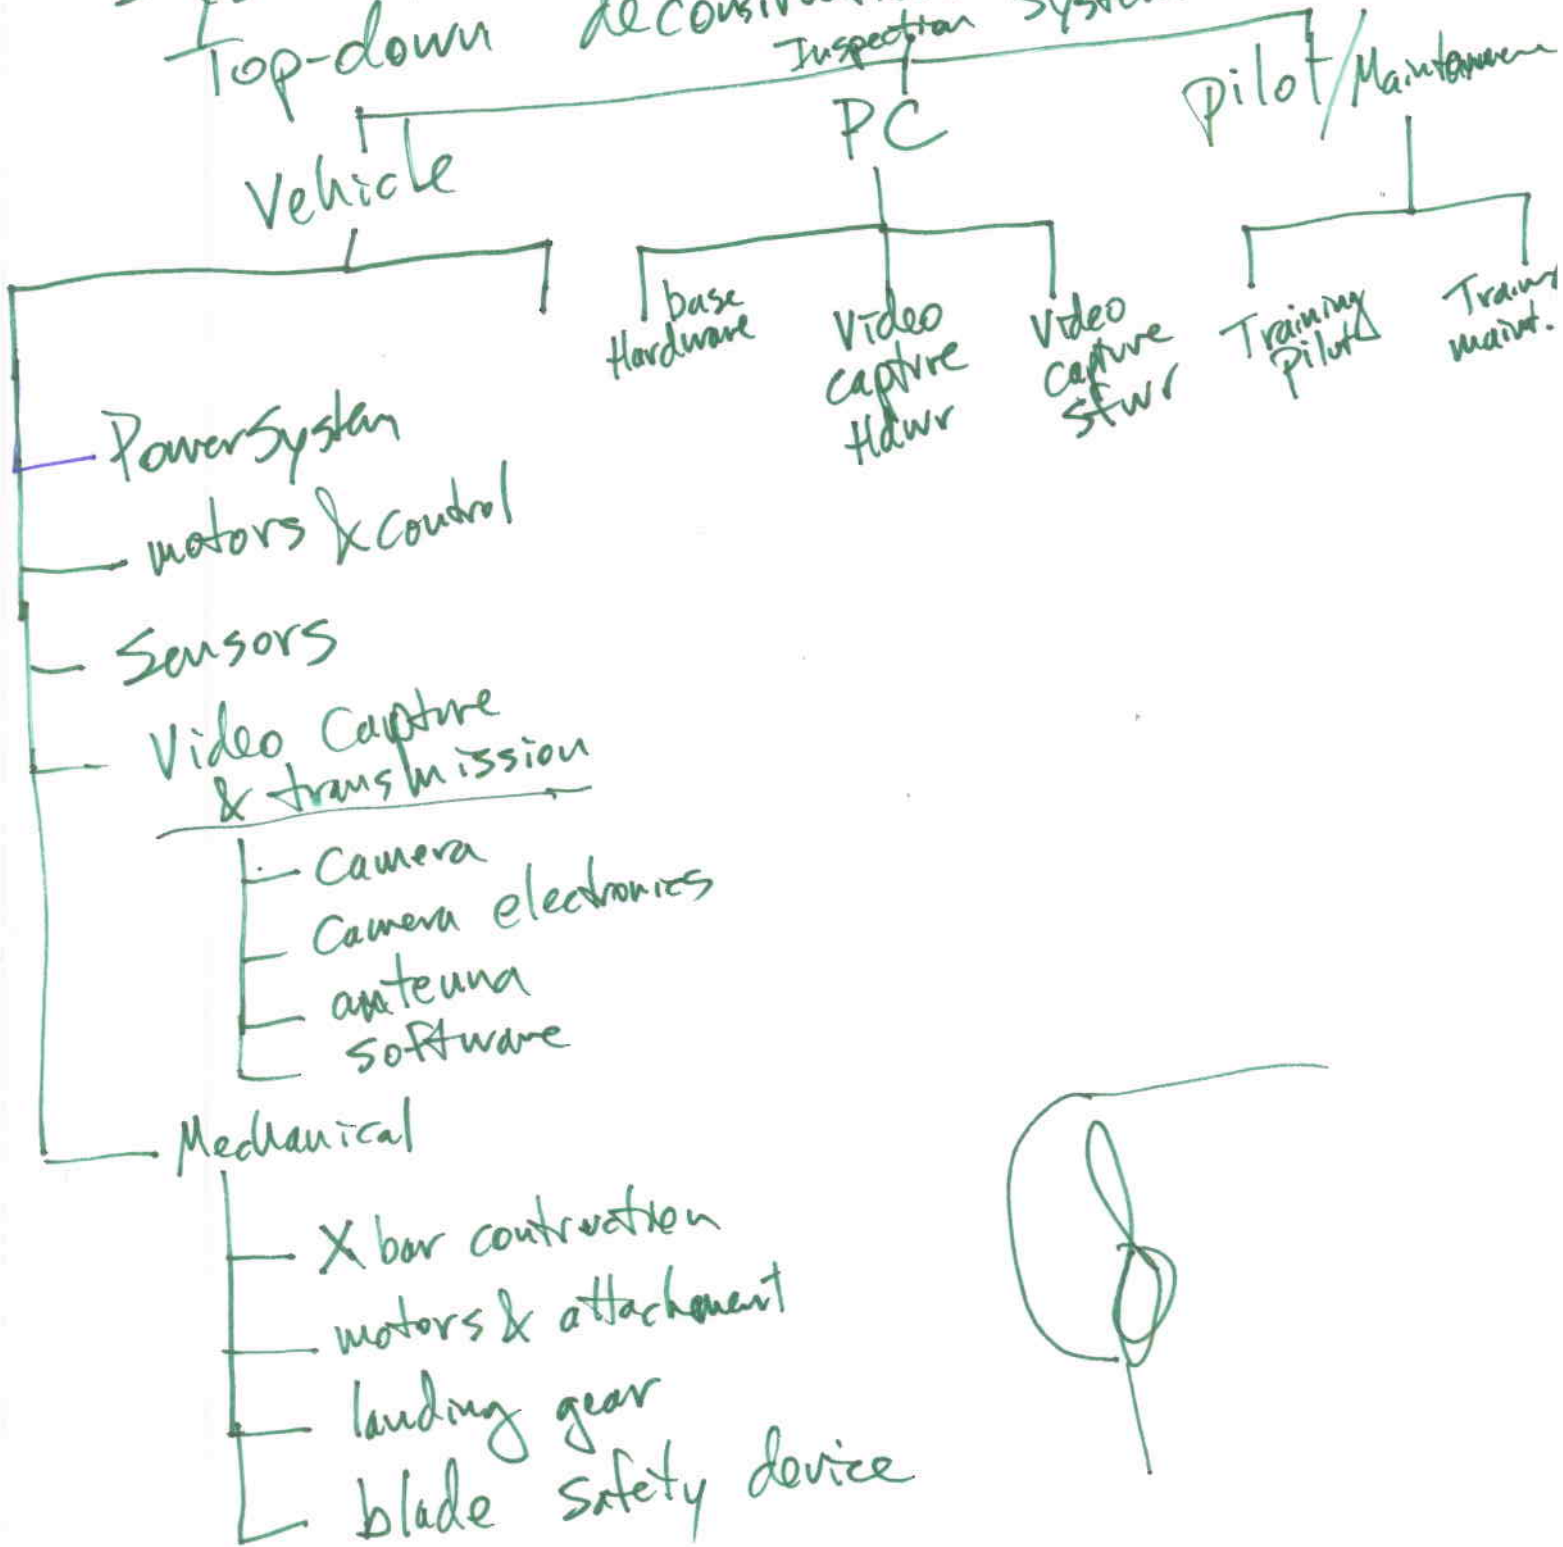 Top-down
Inspection
Vehicle
PC
Pilot/Maintenance
base
Hardware
Video
capture
Hdwr
Video
capture
Sfwr
Training
Pilot
Train
maint.
Power System
motors & control
Sensors
Video Capture
& transmission
Camera
Camera electronics
antenna
software
Mechanical
X bar contruction
motors & attachment
landing gear
blade safety device